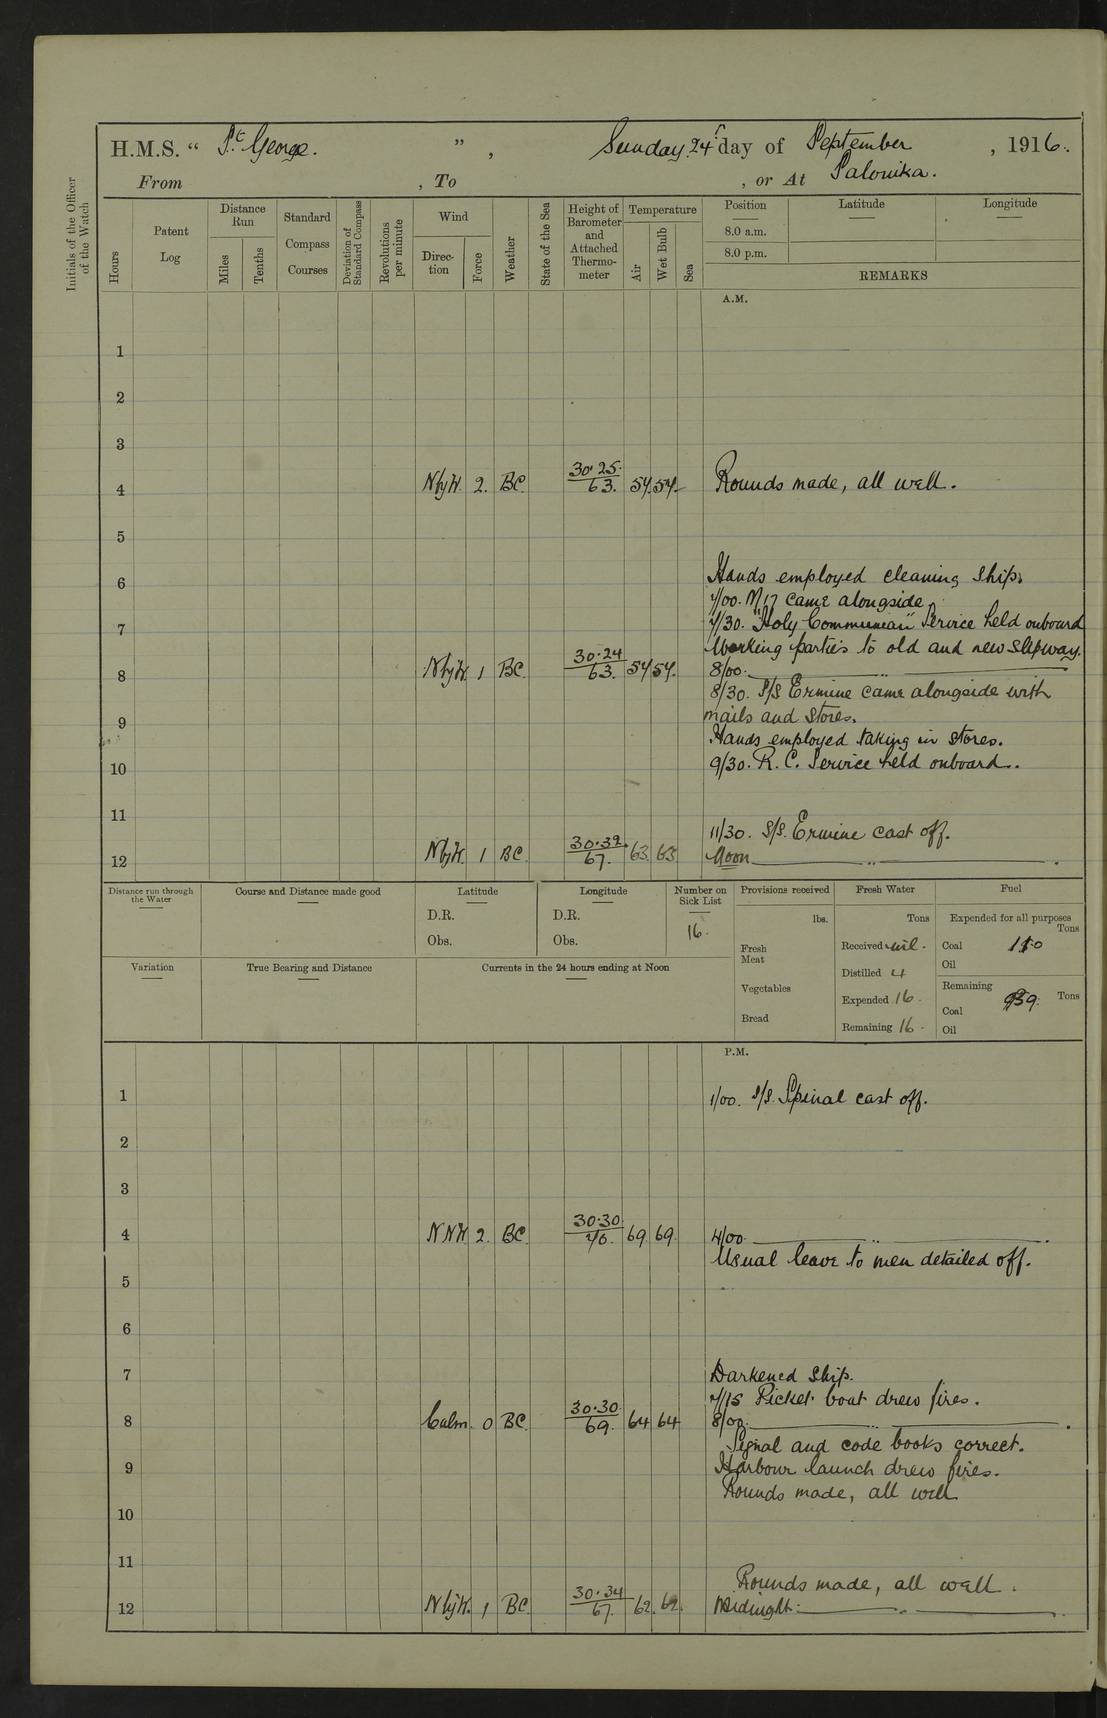 H.M.S. “ St. George. ” , Sunday 24th day of September , 1916.
From , To , or At Salonika.
Initials of the Officer of the Watch
Hours
Patent Log
Distance Run
Miles
Tenths
Standard Compass Courses
Deviation of Standard Compass
Revolutions per minute
Wind
Direc-tion
Force
Weather
State of the Sea
Height of Barometer and Attached Thermo-meter
Temperature
Air
Wet Bulb
Sea
Position Latitude Longitude
8.0 a.m.
8.0 p.m.
REMARKS
A.M.
1
2
3
4 NbyW. 2. BC. 30.25. 63. 54. 54. Rounds made, all well.
5
6 Hands employed cleaning ship.
7/00. M17 came alongside.
7 7/30. "Holy Communion" Service held onboard
Working parties to old and new slipway.
8 NbyW. 1 BC. 30.24 63. 54 54. 8/00. ———— " ————
8/30. S/S Ermine came alongside with
9 mails and stores.
Hands employed taking in stores.
10 9/30. R.C. Service held onboard.
11
11/30. S/S. Ermine cast off.
12 NbyW. 1 BC. 30.32. 67. 63. 63 Noon ———— " ———— .
Distance run through the Water
Course and Distance made good
Latitude
D.R.
Obs.
Longitude
D.R.
Obs.
Number on Sick List
16.
Provisions received
lbs.
Fresh Meat
Vegetables
Bread
Fresh Water
Tons
Received nil.
Distilled 4
Expended 16.
Remaining 16.
Fuel
Expended for all purposes
Tons
Coal
Oil
Remaining
Coal Tons
Oil
Variation
True Bearing and Distance
Currents in the 24 hours ending at Noon
P.M.
1 1/00. S/S. Spinal cast off.
2
3
4 NNW. 2. BC. 30.30. 70. 69. 69. 4/00. ———— " ———— .
Usual leave to men detailed off.
5
6
7 Darkened ship.
7/15 Picket boat drew fires.
8 Calm. 0 BC. 30.30. 69. 64 64 8/00. ———— " ———— .
Signal and code books correct.
9 Harbour launch drew fires.
Rounds made, all well
10
11
Rounds made, all well.
12 NbyW. 1 BC 30.34 67. 62. 62. Midnight. ———— " ———— .